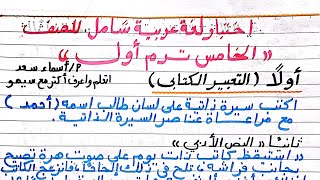 اختبار لغة عربية شامل للصف
« الخامس ترم أول »
أ/ أسماء سعد
أولًا ( التعبير الكتابي )
اتعلم واعرف أكتر مع سيمو
اكتب سيرة ذاتية على لسان طالب اسمه ( أحمد )
مع مراعاة عناصر السيرة الذاتية .
ثانيًا " النص الأدبي "
« استيقظ كاتب ذات يوم على صوت هرة تصيح
بجانب فراشه ، تلح في ذلك إلحاحًا ، فانزعج الكاتب